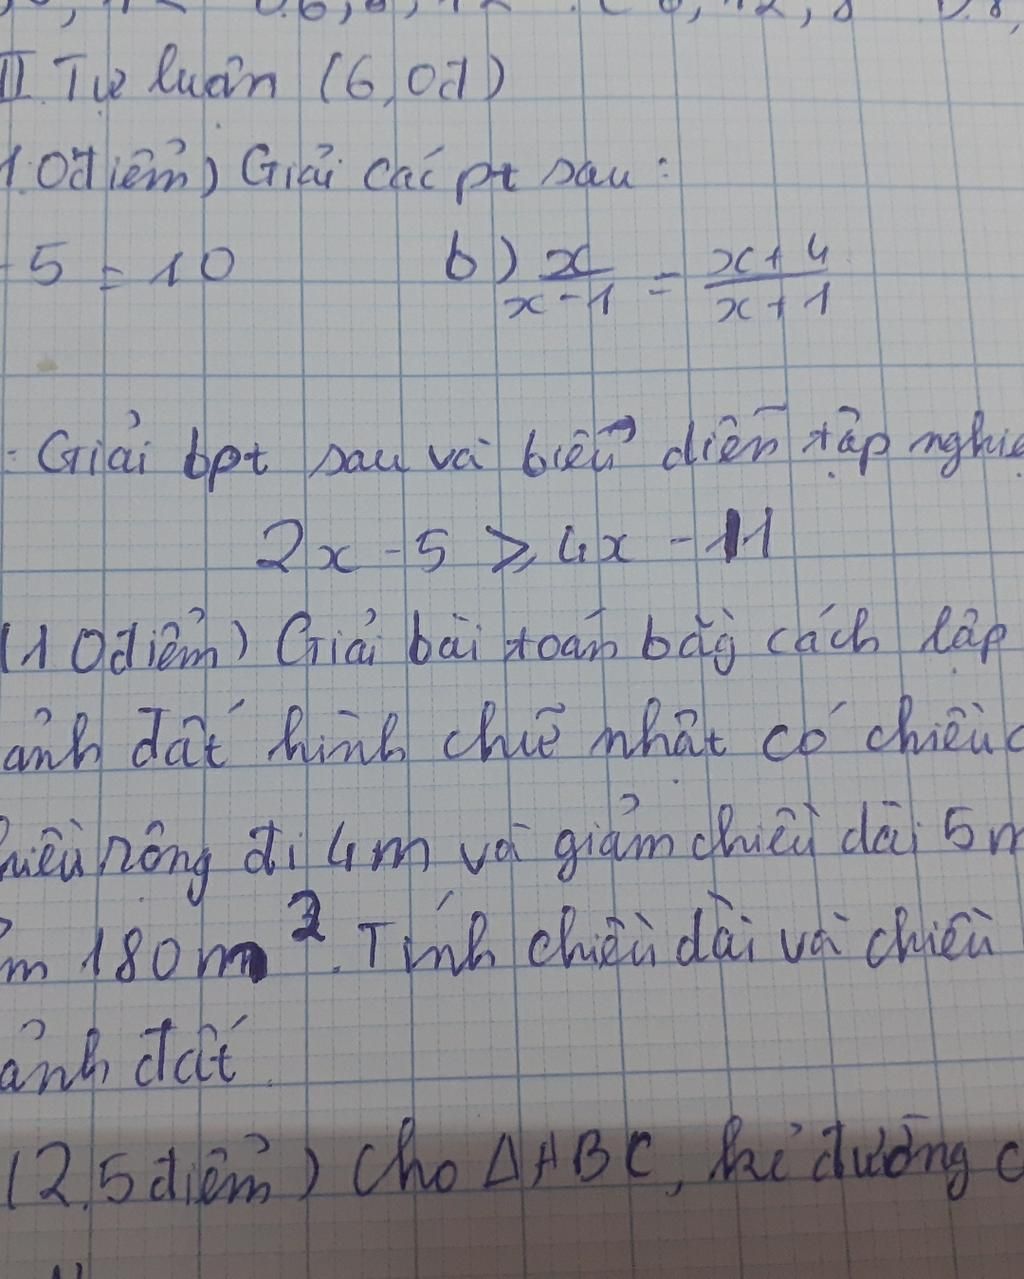 II. Tự luận (6,0đ)
1.0điểm) Giải các pt sau:
5 = 10 b) x/(x-1) = (x+4)/(x+1)
Giải bpt sau và biểu diễn tập nghiệ
2x - 5 ≥ 4x - 11
(1 0điểm) Giải bài toán bằg cách lập
ảnh đất hình chữ nhật có chiều d
hiều rộng đi 4m và giảm chiều dài 5m
m 180m². Tính chiều dài và chiều
ảnh đất.
(2,5điểm) Cho ΔABC, kẻ đường c